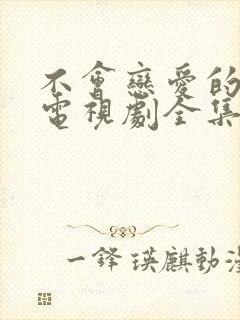 不會戀愛的
電視劇全集
一鋒瑛麒動漫